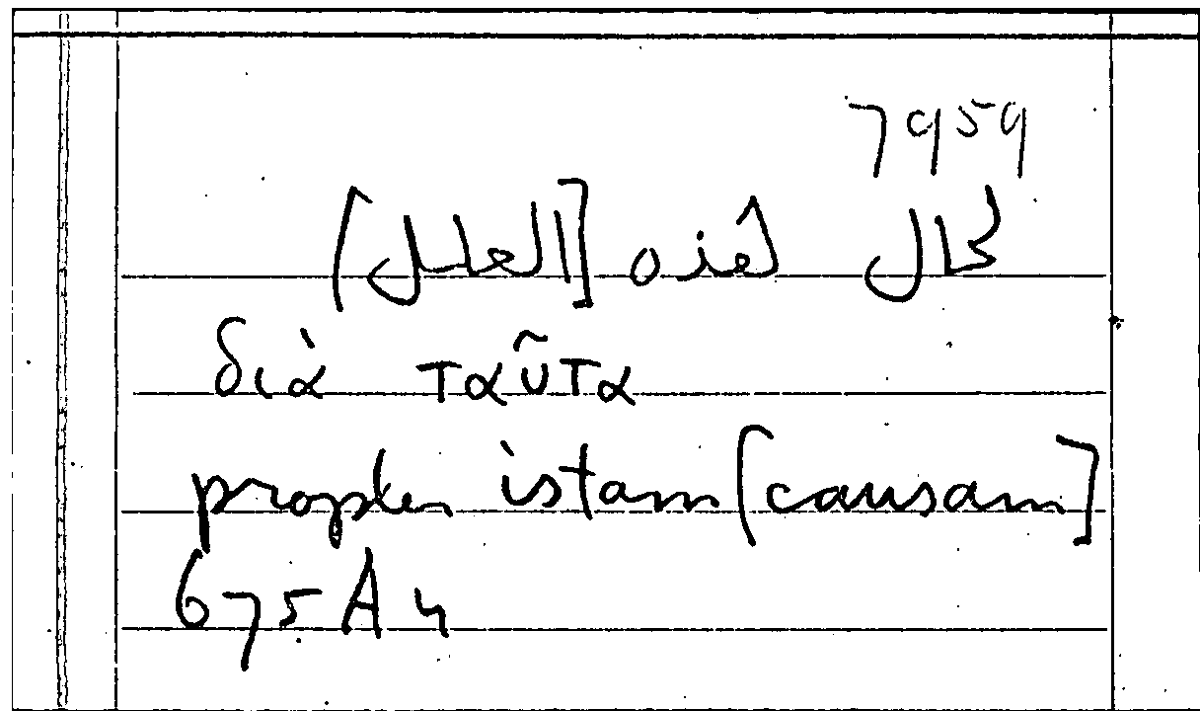 7959
لحال هذه [العلل]
διὰ ταῦτα
propter istam [causam]
675 A 4